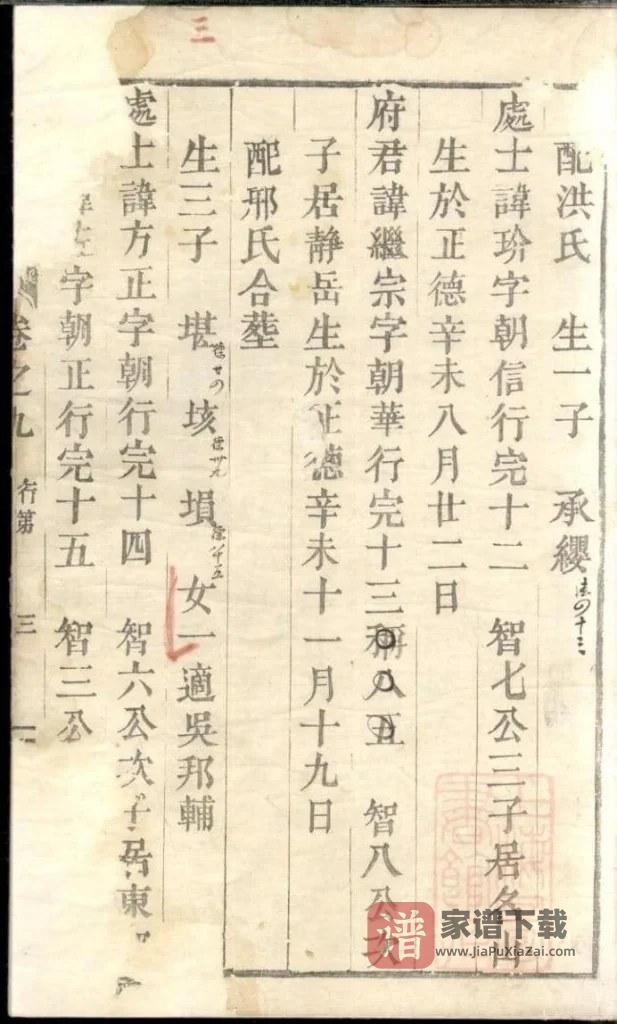 三
配洪氏 生一子 承纓
處士諱玠字朝信行完十二 智七公三子居名山
生於正德辛未八月廿二日
府君諱繼宗字朝華行完十三稱八五 智八公次
子居靜岳生於正德辛未十一月十九日
配邢氏合塟
生三子 堪 垓 塤 女一適吳邦輔
處士諱方正字朝行完十四 智六公次子居東
字朝正行完十五 智三公
卷之九 行第 三
家谱下载
www.JiaPuXiaZai.com
谱